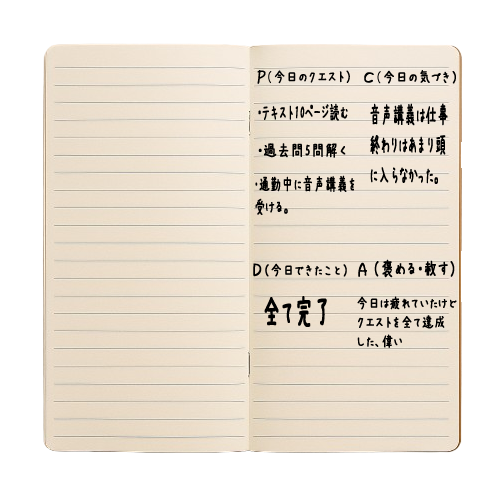 P(今日のクエスト)
・テキスト10ページ読む
・過去問5問解く
・通勤中に音声講義を
受ける。
C(今日の気づき)
音声講義は仕事
終わりはあまり頭
に入らなかった。
D(今日できたこと)
全て完了
A(褒める・赦す)
今日は疲れていたけど
クエストを全て達成
した、偉い